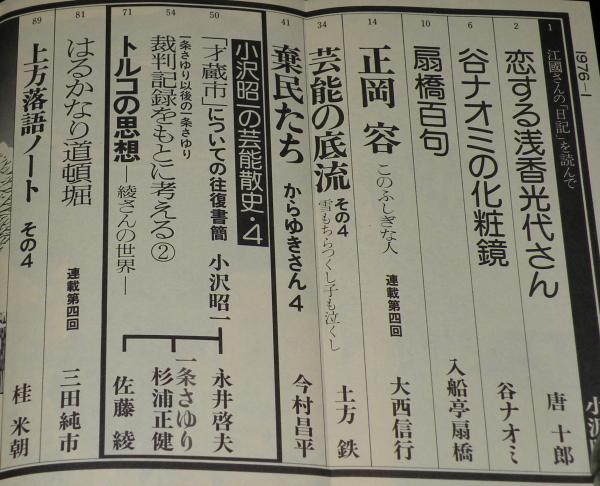 1976-1
1
江國さんの「日記」を読んで
恋する浅香光代さん
唐 十郎
2
谷ナオミの化粧鏡
谷ナオミ
6
扇橋百句
入船亭扇橋
10
正岡 容 このふしぎな人 連載第四回
大西信行
14
芸能の底流 その4
雪もちらつくし子も泣くし
土方 鉄
34
棄民たち からゆきさん 4
今村昌平
41
小沢昭一の芸能散史・4
「才蔵市」についての往復書簡
小沢昭一
永井啓夫
50
一条さゆり以後の一条さゆり
裁判記録をもとに考える②
一条さゆり
杉浦正健
54
トルコの思想 ―綾さんの世界―
佐藤 綾
71
はるかなり道頓堀 連載第四回
三田純市
81
上方落語ノート その4
桂 米朝
89